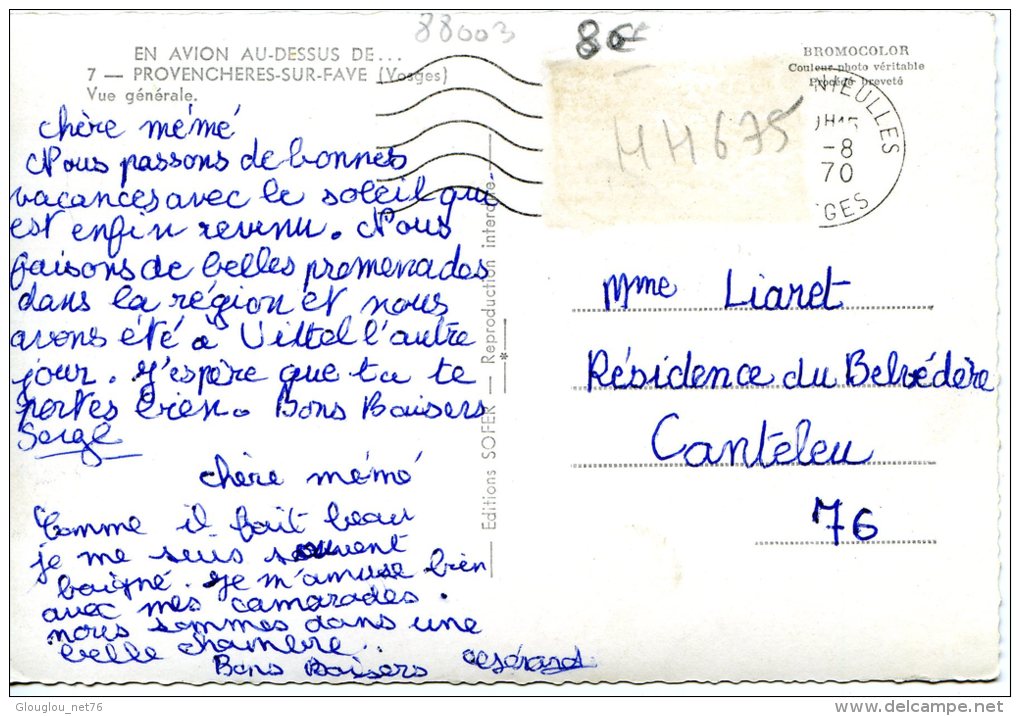 88003
86
EN AVION AU-DESSUS DE...
7 — PROVENCHERES-SUR-FAVE (Vosges)
Vue générale.
BROMOCOLOR
Couleur photo véritable
Procédé breveté
HH675
NIEULLES
-8
70
GES
chère mémé
Nous passons de bonnes
vacances avec le soleil qui
est enfin revenu. Nous
faisons de belles promenades
dans la région et nous
avons été à Vittel l'autre
jour. J'espère que tu te
portes bien. Bons Baisers
Serge
chère mémé
Comme il fait beau
je me suis souvent
baigné. Je m'amuse bien
avec mes camarades.
nous sommes dans une
belle chambre..
Bons Baisers Gérard
Editions SOFER — Reproduction interdite
Mme Liaret
Résidence du Belvédère
Canteleu
76
Glouglou_net76
delcampe.net